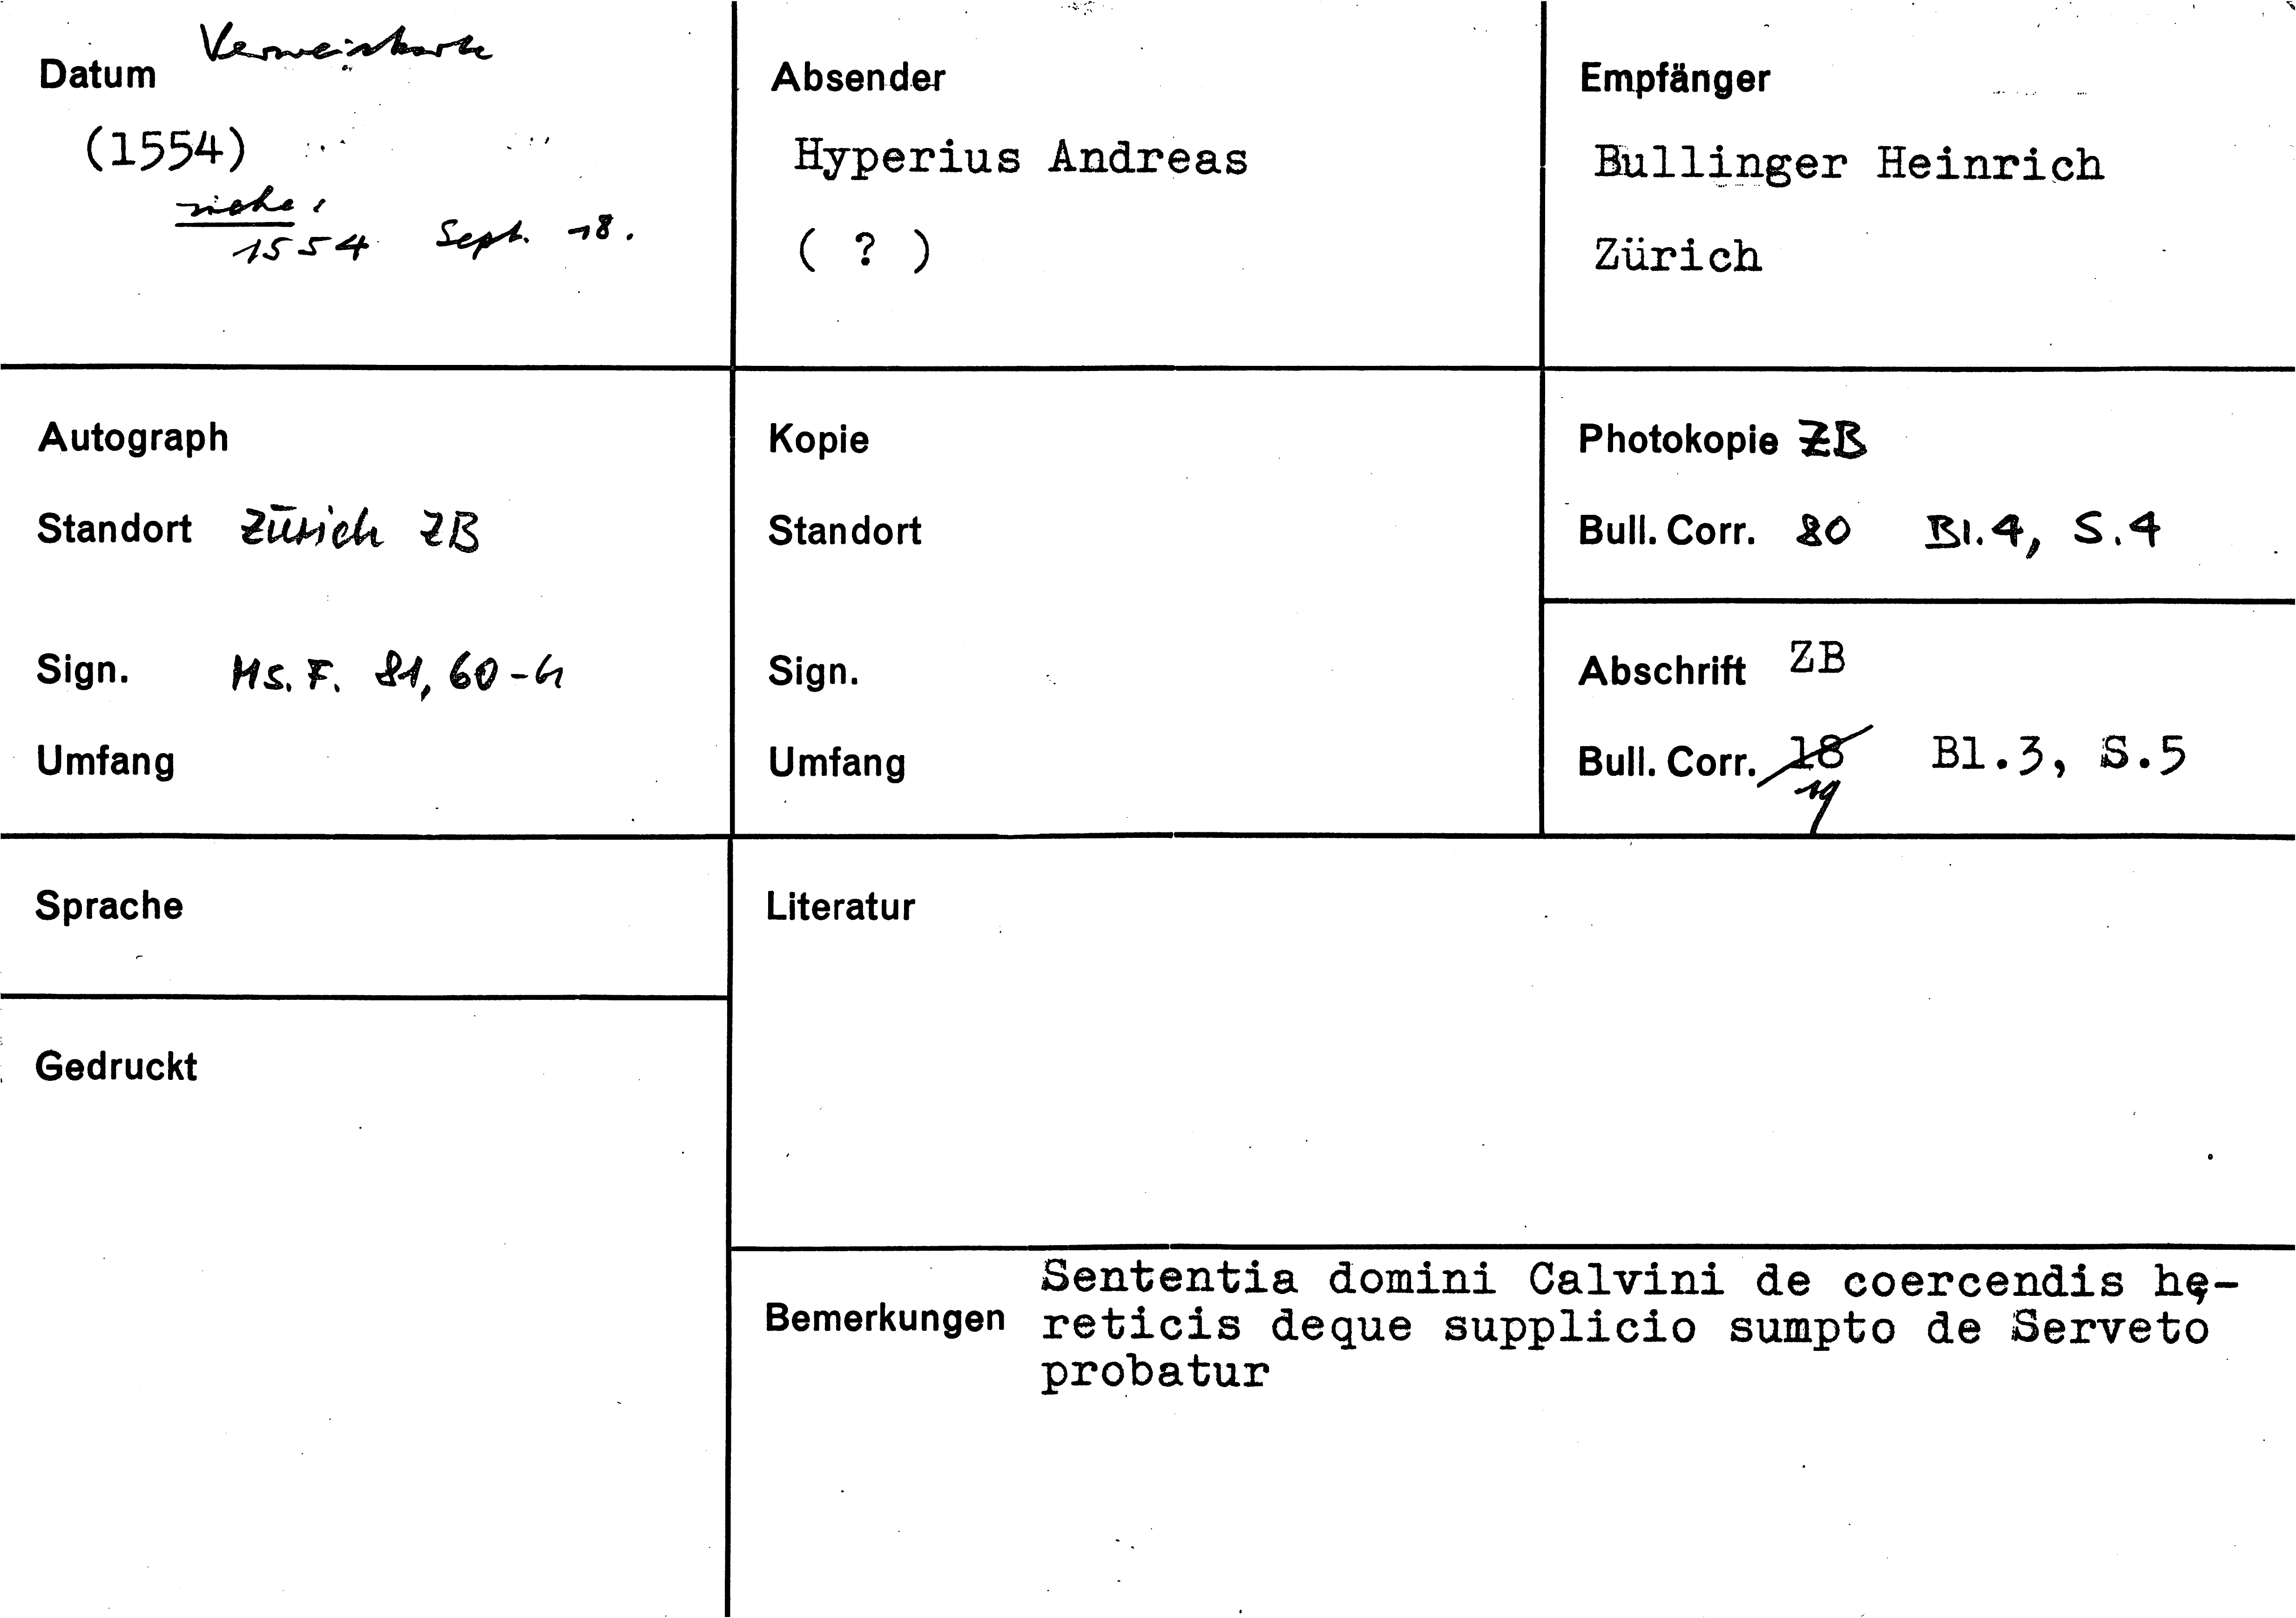 Verweiskarte
Datum
(1554)
siehe:
1554 Sept. 18.
Absender
Hyperius Andreas
( ? )
Empfänger
Bullinger Heinrich
Zürich
Autograph
Standort Zürich ZB
Sign. Ms. F. 81, 60-61
Umfang
Kopie
Standort
Sign.
Umfang
Photokopie ZB
Bull. Corr. 80 Bl.4, S.4
Abschrift ZB
Bull. Corr. 18 Bl.3, S.5
19
Sprache
Gedruckt
Literatur
Bemerkungen
Sententia domini Calvini de coercendis hę-
reticis deque supplicio sumpto de Serveto
probatur